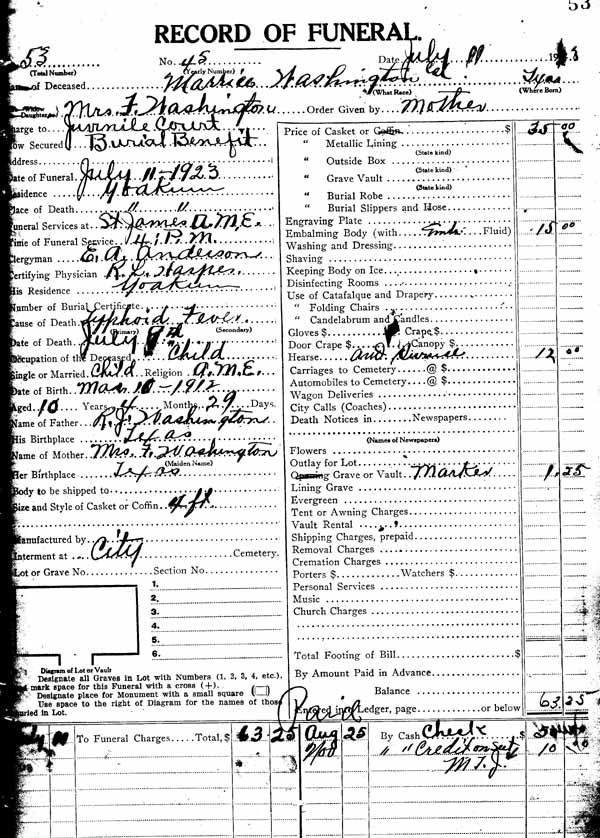 53
RECORD OF FUNERAL.
53 No. 45 Date July 11 19
(Total Number) (Yearly Number)
of Deceased Washington Col Texas
(What Race) (Where Born)
Mrs. F. Washington Order Given by Mother
Charge to Juvenile Court
How Secured Burial Benefit
Address
Date of Funeral July 11-1923
Residence Yoakum
Place of Death " "
Funeral Services at St. James A.M.E.
Time of Funeral Service 4; P.M.
Clergyman E. A. Anderson
Certifying Physician R. L.
His Residence Yoakum
Number of Burial Certificate
Cause of Death Typhoid Fever
(Primary) (Secondary)
Date of Death July
Occupation of the Deceased Child
Single or Married Child Religion A.M.E.
Date of Birth Mar. 10-1912
Aged 10 Years 4 Months 29 Days.
Name of Father R. J. Washington
His Birthplace Texas
Name of Mother Mrs. F. Washington
(Maiden Name)
Her Birthplace Texas
Body to be shipped to
Size and Style of Casket or Coffin 4 ft.
Manufactured by
Interment at City Cemetery.
Lot or Grave No. Section No.
1.
2.
3.
4.
5.
6.
Diagram of Lot or Vault
Designate all Graves in Lot with Numbers (1, 3, 3, 4, etc.),
mark space for this Funeral with a cross (+).
Designate place for Monument with a small square
Use space to the right of Diagram for the names of those
Buried in Lot.
Price of Casket or Coffin $ 35 00
" Metallic Lining
(State kind)
" Outside Box
(State kind)
" Grave Vault
(State kind)
" Burial Robe
" Burial Slippers and Hose
Engraving Plate
Embalming Body (with Fluid) 15 00
Washing and Dressing
Shaving
Keeping Body on Ice
Disinfecting Rooms
Use of Catafalque and Drapery
" Folding Chairs
" Candelabrum and Candles
Gloves $ Crape $
Door Crape $ Canopy $
Hearse and Service 12 00
Carriages to Cemetery @ $
Automobiles to Cemetery @ $
Wagon Deliveries
City Calls (Coaches)
Death Notices in Newspapers
(Names of Newspapers)
Flowers
Outlay for Lot
Opening Grave or Vault Marker 1.25
Lining Grave
Evergreen
Tent or Awning Charges
Vault Rental
Shipping Charges, prepaid
Removal Charges
Cremation Charges
Porters $ Watchers $
Personal Services
Music
Church Charges
Total Footing of Bill $
By Amount Paid in Advance
Balance
Entered in Ledger, page or below 63 25
Paid
To Funeral Charges Total, $ 63 25 Aug 25 By Cash Check $
" " Credit on 10
M.T.J.